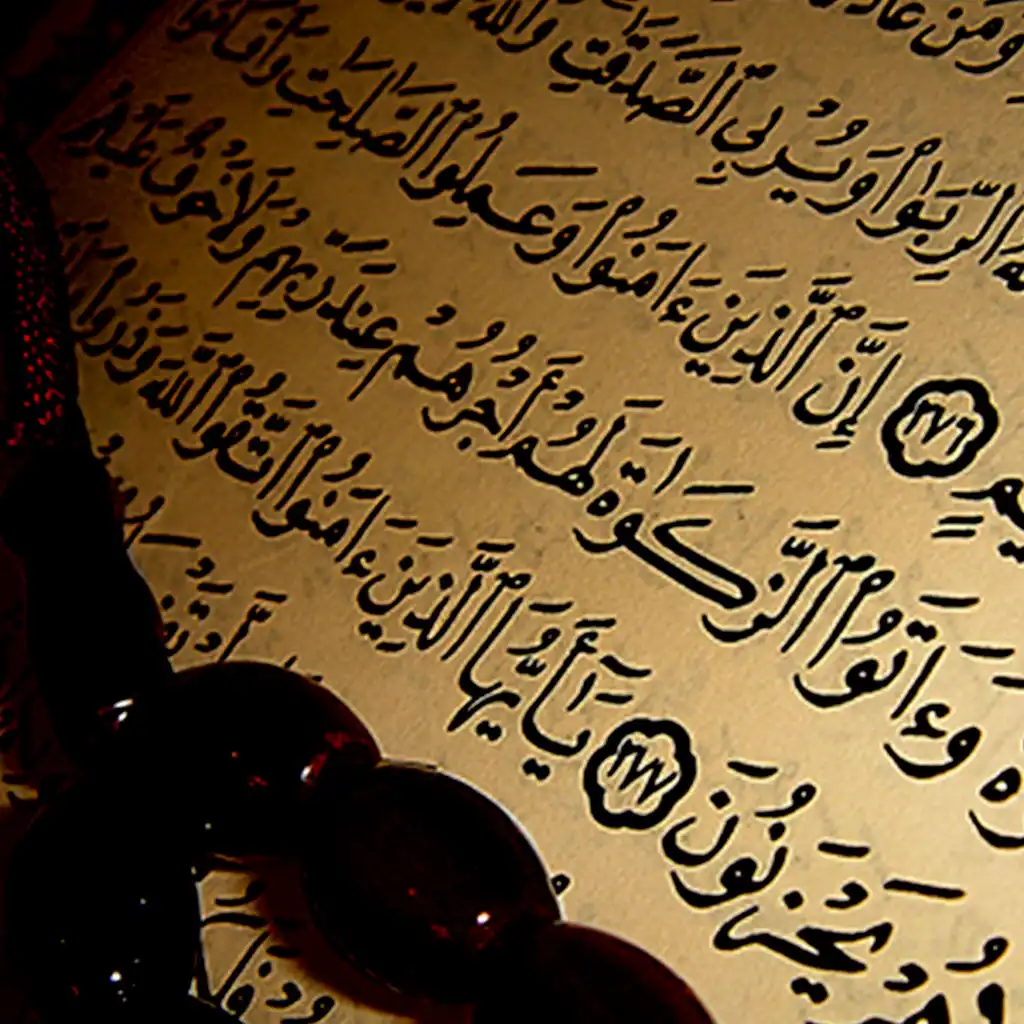 وَمَنْ عَادَ
ٱلرِّبَوٰا۟ وَيُرْبِى ٱلصَّدَقَٰتِ وَٱللَّهُ
﴿٢٧٦﴾ إِنَّ ٱلَّذِينَ ءَامَنُوا۟ وَعَمِلُوا۟ ٱلصَّٰلِحَٰتِ وَأَقَامُوا۟
وَءَاتَوُا۟ ٱلزَّكَوٰةَ لَهُمْ أَجْرُهُمْ عِندَ رَبِّهِمْ وَلَا خَوْفٌ عَلَيْهِمْ
يَحْزَنُونَ ﴿٢٧٧﴾ يَٰٓأَيُّهَا ٱلَّذِينَ ءَامَنُوا۟ ٱتَّقُوا۟ ٱللَّهَ وَذَرُوا۟